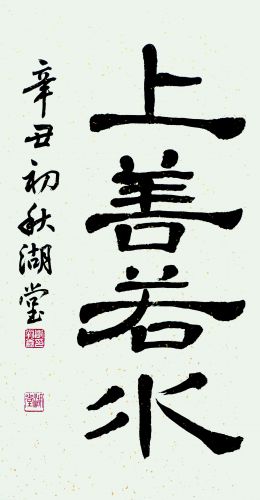 上善若水
辛丑初秋湖堂